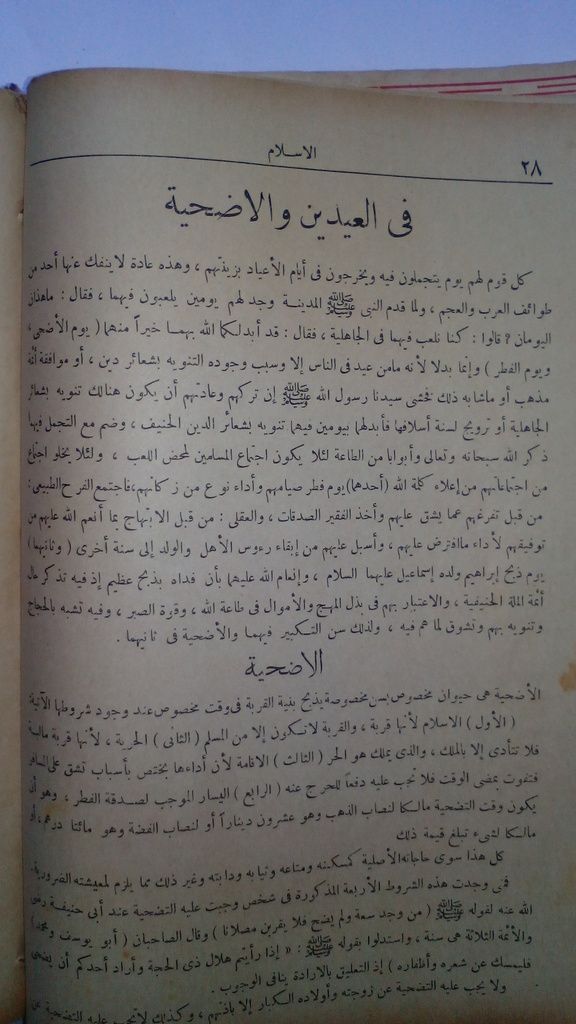 الاسلام
٢٨
فى العيدين والاضحية
كل قوم لهم يوم يتجملون فيه ويخرجون فى أيام الأعياد بزينتهم ، وهذه عادة لاينفك عنها أحد من
طوائف العرب والعجم ، ولما قدم النبى ﷺ المدينة وجد لهم يومين يلعبون فيهما ، فقال : ماهذان
اليومان ? قالوا : كنا نلعب فيهما فى الجاهلية ، فقال : قد أبدلكما الله بهما خيراً منهما ( يوم الأضحى ،
ويوم الفطر ) وإنما بدلا لأنه مامن عيد فى الناس إلا وسبب وجوده التنويه بشعائر دين ، أو موافقة أئمة
مذهب أو ماشابه ذلك فخشى سيدنا رسول الله ﷺ إن تركهم وعادتهم أن يكون هنالك تنويه بشعائر
الجاهلية أو ترويج لسنة أسلافها فأبدلهما بيومين فيهما تنويه بشعائر الدين الحنيف ، وضم مع التجمل فيهما
ذكر الله سبحانه وتعالى وأبوابا من الطاعة لئلا يكون اجتماع المسلمين لمحض اللعب ، ولئلا يخلو اجتماع
من اجتماعاتهم من إعلاء كلمة الله (أحدهما) يوم فطر صيامهم وأداء نوع من زكاتهم ؛ فاجتمع الفرح الطبيعى :
من قبل تفرغهم عما يشق عليهم وأخذ الفقير الصدقات ، والعقلى : من قبل الابتهاج بما أنعم الله عليهم من
توفيقهم لأداء ماافترض عليهم ، وأسبل عليهم من إبقاء رءوس الأهل والولد إلى سنة أخرى ( وثانيهما )
يوم ذبح إبراهيم ولده إسماعيل عليهما السلام ، وإنعام الله عليهما بأن فداه بذبح عظيم إذ فيه تذكر حال
أئمة الملة الحنيفية ، والاعتبار بهم فى بذل المهج والأموال فى طاعة الله ، وقوة الصبر ، وفيه تشبه بالحجاج
وتنويه بهم وتشوق لما هم فيه ، ولذلك سن التكبير فيهما والأضحية فى ثانيهما .
الاضحية
الأضحية هى حيوان مخصوص بسن مخصوصة يذبح بنية القربة فى وقت مخصوص عند وجود شروطها الآتية :
( الأول ) الاسلام لأنها قربة ، والقربة لاتكون إلا من المسلم ( الثانى ) الحرية ، لأنها قربة مالية
فلا تتأدى إلا بالملك ، والذى يملك هو الحر ( الثالث ) الاقامة لأن أداءها يختص بأسباب تشق على المسافر
فتفوت بمضى الوقت فلا تجب عليه دفعاً للحرج عنه ( الرابع ) اليسار الموجب لصدقة الفطر ، وهو أن
يكون وقت التضحية مالكا لنصاب الذهب وهو عشرون ديناراً أو لنصاب الفضة وهو مائتا درهم ، أو
مالكا لشىء تبلغ قيمة ذلك
كل هذا سوى حاجاته الأصلية كمسكنه ومتاعه وثيابه ودابته وغير ذلك مما يلزم لمعيشته الضرورية.
فمتى وجدت هذه الشروط الأربعة المذكورة فى شخص وجبت عليه التضحية عند أبى حنيفة رضى
الله عنه لقوله ﷺ ( من وجد سعة ولم يضح فلا يقربن مصلانا ) وقال الصاحبان ( أبو يوسف ومحمد)
والأئمة الثلاثة هى سنة ، واستدلوا بقوله ﷺ : « إذا رأيتم هلال ذى الحجة وأراد أحدكم أن يضحى
فليمسك عن شعره وأظفاره ) إذ التعليق بالارادة ينافى الوجوب .
ولا يجب عليه التضحية عن زوجته وأولاده الكبار إلا باذنهم ، وكذلك لاتجب عليه التضحية عن